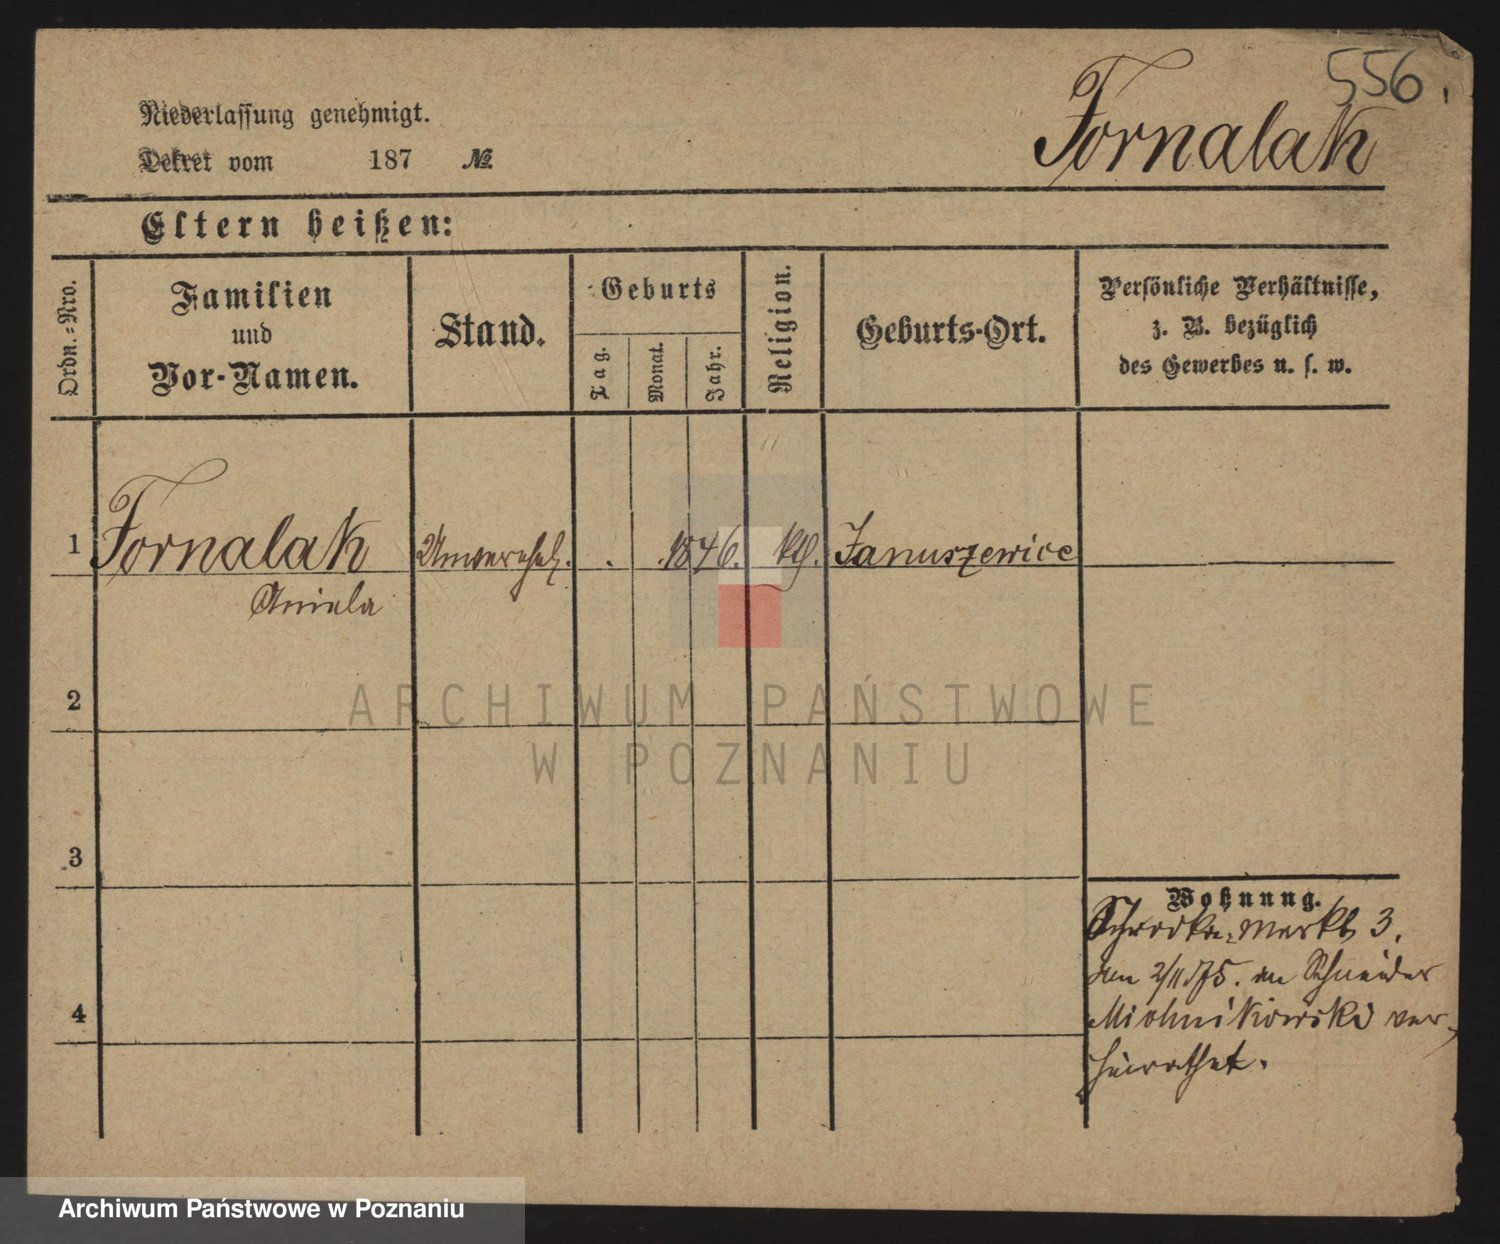 556.
Fornalak
Niederlassung genehmigt.
Dekret vom 187 №
Eltern heißen:
Ordn.-Nro.
Familien
und
Vor-Namen.
Stand.
Geburts
Tag.
Monat.
Jahr.
Religion.
Geburts-Ort.
Persönliche Verhältnisse,
z. B. bezüglich
des Gewerbes u. s. w.
1 Fornalak Unverehel. 1846. kth. Januszewice
Aniela
2
3
4
Wohnung.
Schrodka-Markt 3.
am 2/11 75. an Schneider
Michnikowski ver-
heirathet.
ARCHIWUM PAŃSTWOWE
W POZNANIU
Archiwum Państwowe w Poznaniu